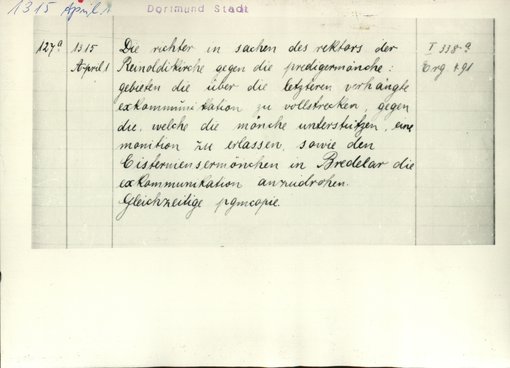 1315 April 1
Dortmund Stadt
127a 1315 April 1
Die richter in sachen des rektors der
Reinoldikirche gegen die predigermönche:
gebieten die über die letzteren verhängte
exkommunikation zu vollstrecken, gegen
die, welche die mönche unterstützen, eine
monition zu erlassen, sowie den
Cisterciensermönchen in Bredelar die
exkommunikation anzudrohen.
Gleichzeitige pgmcopie.
I 338 a
Erg 491